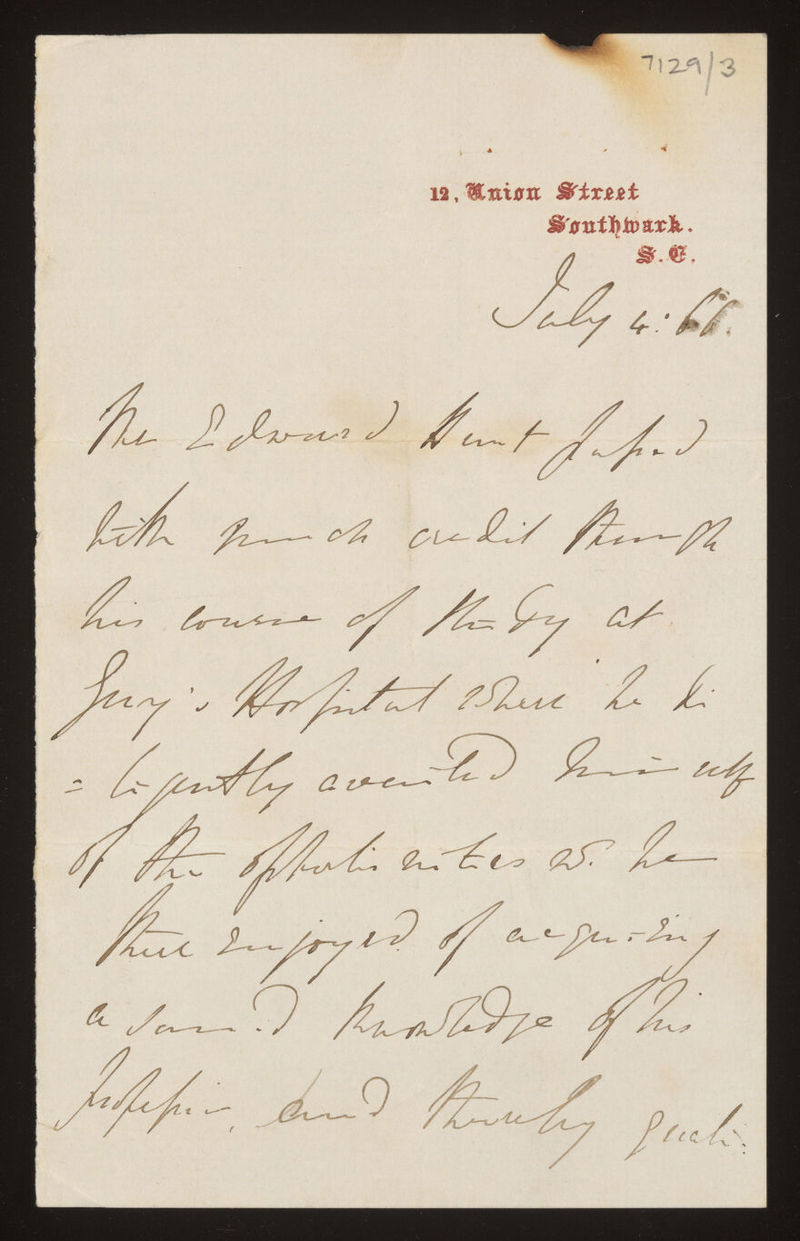 7129/3
12, Union Street
Southwark.
S.E.
July 4: 66.
Mr Edward Hunt passed
with much credit through
his course of study at
Guy's Hospital where he di
= ligently availed himself
of the opportunities wh. he
there enjoyed of acquiring
a sound knowledge of his
profession, and thereby quali: